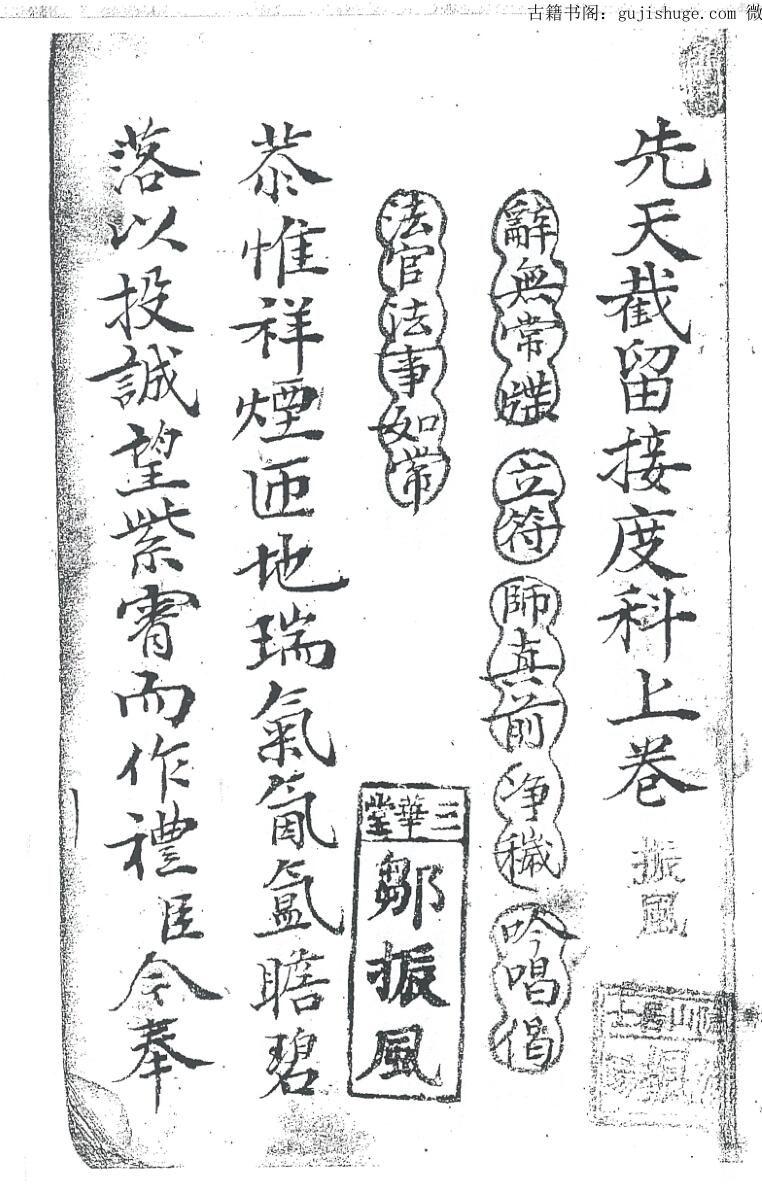 古籍书阁：gujishuge.com 微
先天截留接度科上卷 振風
辭無常牒 立符 師真前 净穢 吟唱偈
法官法事如常
三華堂
鄒振風
恭惟祥煙匝地瑞氣氤氳瞻碧
落以投誠望紫霄而作禮臣今奉